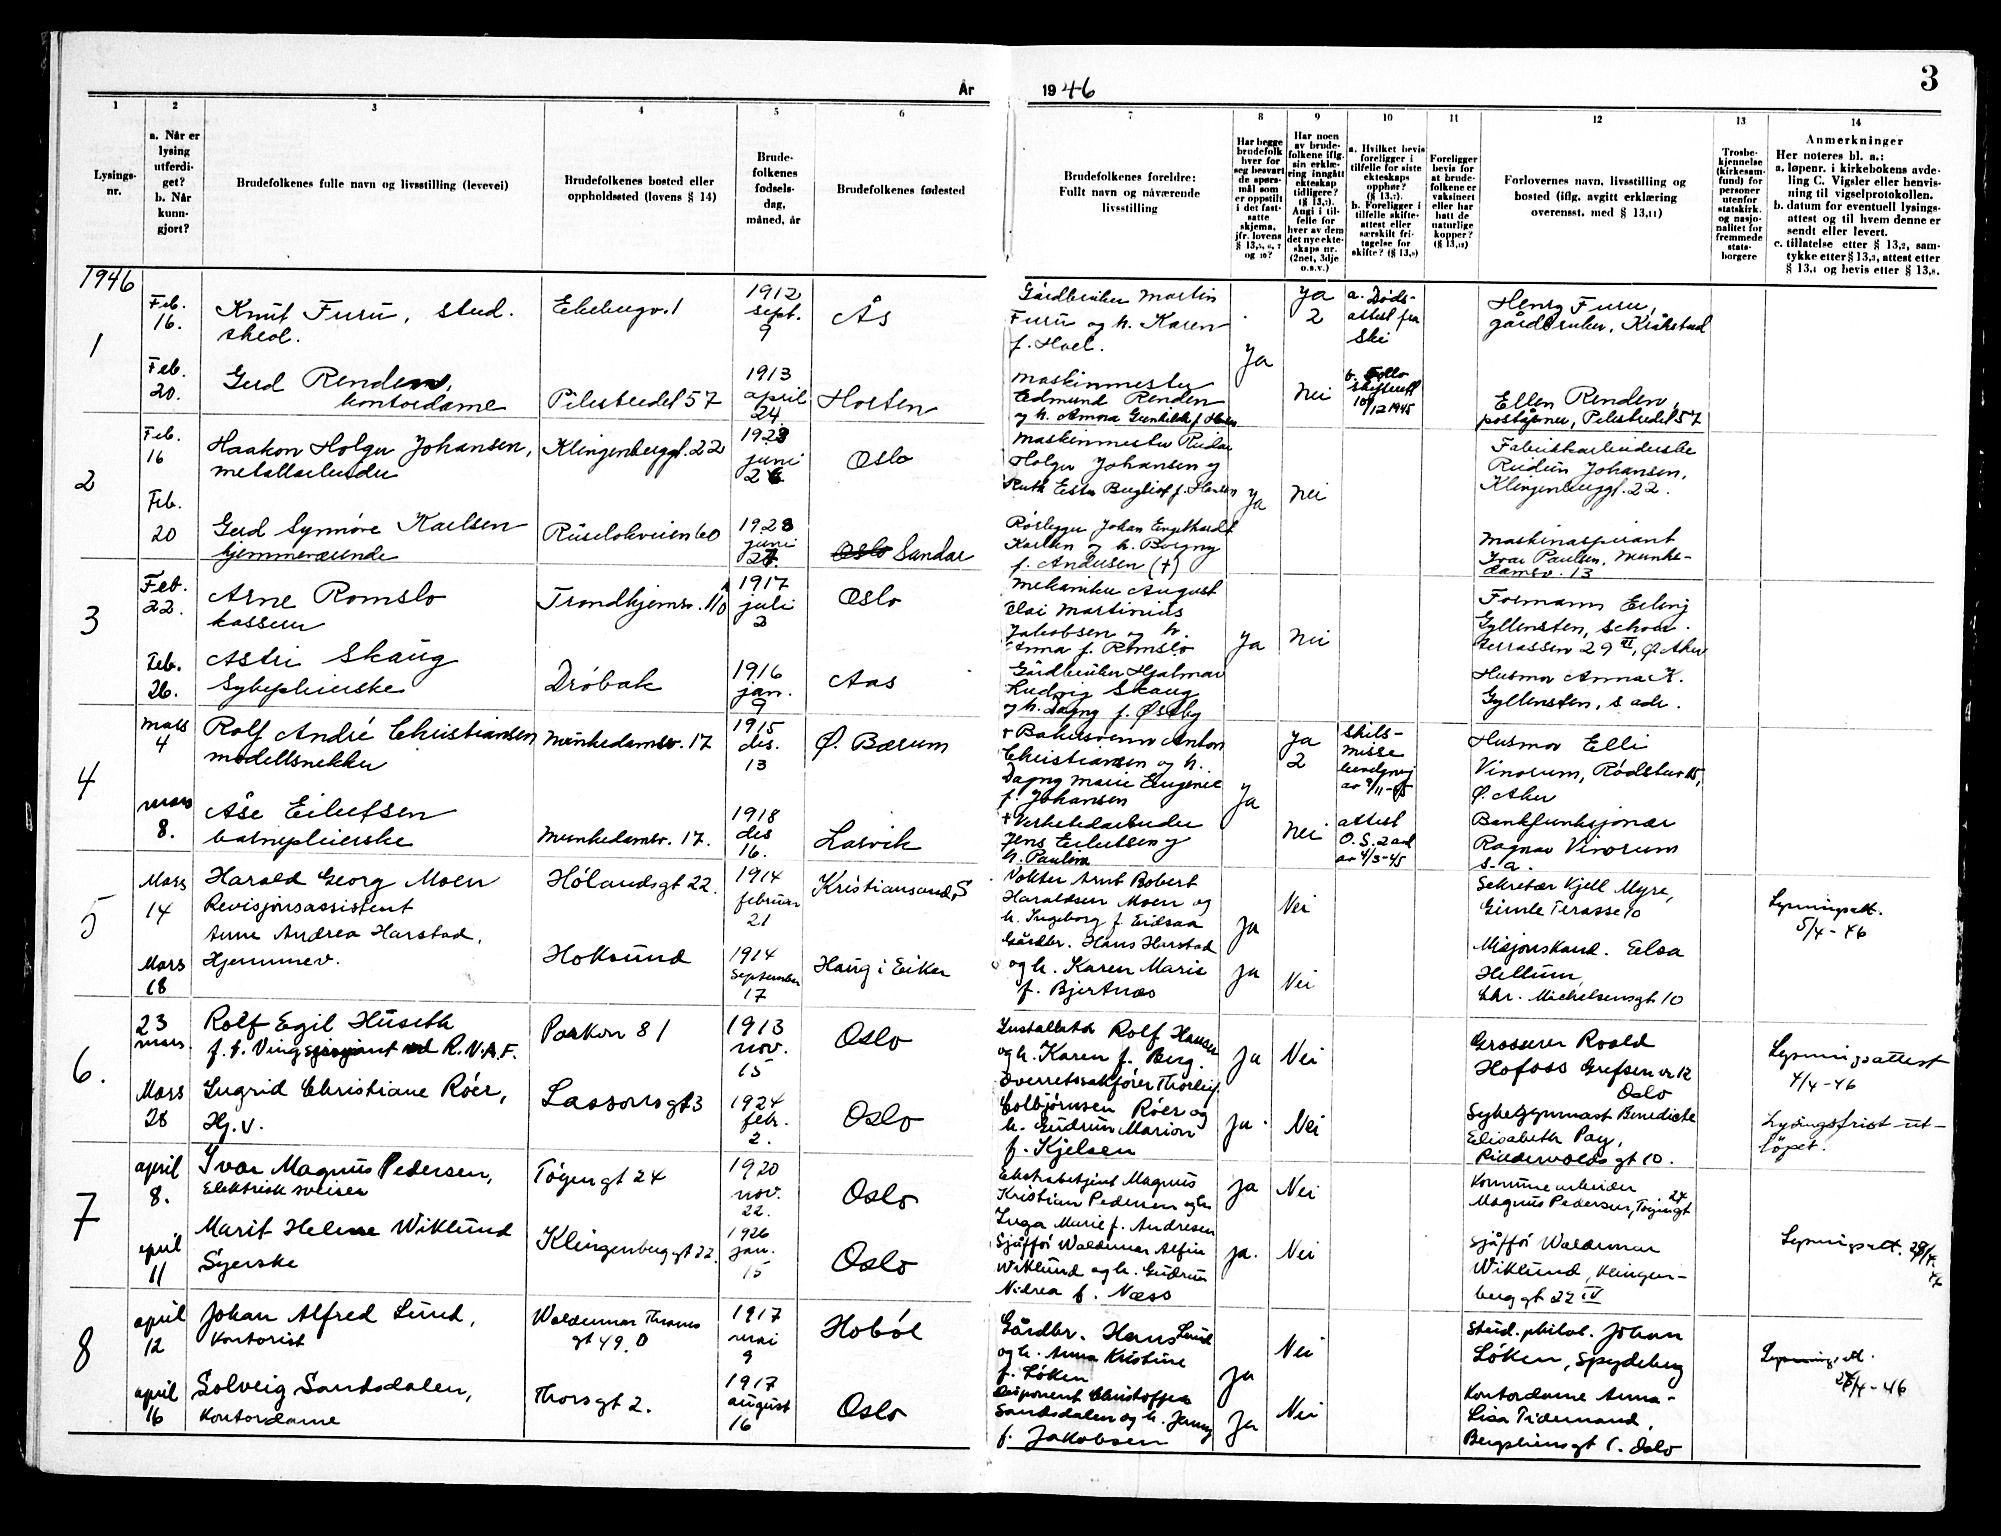 År
19 46
3
1
2
3
4
5
6
7
8
9
10
11
12
13
14
Lysings-
nr.
a. Når er
lysing
utferdi-
get?
b. Når
kunn-
gjort?
Brudefolkenes fulle navn og livsstilling (levevei)
Brudefolkenes bosted eller
oppholdssted (lovens § 14)
Brude-
folkenes
fødsels-
dag,
måned, år
Brudefolkenes fødested
Brudefolkenes foreldre:
Fullt navn og nåværende
livsstilling
Har begge
brudefolk
hver for
seg besvart
de spørs-
mål som
er oppstilt
i det fast-
satte
skjema,
jfr. lovens
§ 13,5, 6, 7
og 10?
Har noen
av brude-
folkene iflg.
sin erklæ-
ring inngått
ekteskap
tidligere?
(§ 13,7).
Angi i til-
felle for
hver av dem
det nye ekte-
skaps nr.
(2net, 3dje
o.s.v.)
a. Hvilket bevis
foreligger i
tilfelle for siste
ekteskaps
opphør?
(§ 13,7).
b. Foreligger i
tilfelle skifte-
attest eller
særskilt fri-
tagelse for
skifte? (§ 13,9)
Foreligger
bevis for
at brude-
folkene er
vaksinert
eller har
hatt de
naturlige
kopper?
(§ 13,12)
Forlovernes navn, livsstilling og
bosted (iflg. avgitt erklæring
overensst. med § 13,11)
Trosbe-
kjennelse
(kirkesam-
fund) for
personer
utenfor
statskirk.
og nasjo-
nalitet for
fremmede
stats-
borgere
Anmerkninger
Her noteres bl. a.:
a. løpenr. i kirkebokens avde-
ling C. Vigsler eller henvis-
ning til vigselprotokollen.
b. datum for eventuell lysings-
attest og til hvem denne er
sendt eller levert.
c. tillatelse etter § 13,2, sam-
tykke etter § 13,3, attest etter
§ 13,4 og bevis etter § 13,8.
1946
1
Feb.
16.
Knut Furu, stud.
Ekebergv. 1
1912
sept.
9
Ås
Gårdbruker Martin
Furu og h. Karen
f. Hoel.
Ja
Ja
2
a. Døds-
attest fra
Ski
Henry Furu,
gårdbruker, Kråkstad
Feb.
20.
Gerd Renden,
kontordame
Pilestredet 57
1913
april
24
Horten
Maskinmester
Edmund Renden
og h. Anna
Nei
b. Follo
skifterett
10/12 1945
Ellen Renden,
poståpner, Pilestredet 57
2
Feb.
16
Haakon Holger Johansen,
metallarbeider
Klingenberggt. 22
1923
juni
26
Oslo
Maskinmester Reidar
Holger Johansen og
Ruth Ester
Ja
Nei
Fabrikkarbeiderske
Reidun Johansen,
Klingenberggt. 22.
Feb.
20
Gerd Synnøve Karlsen
hjemmeværende
Ruseløkveien 60
1923
juni
27
Oslo Sandar
Rørlegger Johan Engelhardt
Karlsen og h. Borgny
f. Andersen (+)
Maskinaspirant
Ivar Paulsen, Munke-
damsv. 13
3
Feb.
22.
Arne Romslo
kasserer
Trondhjemsv. 110
1917
juli
2
Oslo
Mekaniker August
Elai Martinius
Jakobsen og h.
Anna f. Romslo
Ja
Nei
Formann Erling
Gyllensten,
terrassen 29 II, Ø. Aker
Feb.
26.
Astri Skaug
Sykepleierske
Drøbak
1916
jan.
9
Aas
Gårdbruker Hjalmar
Ludvig Skaug
og h. Dagny f. Østby
Husmor Anna K.
Gyllensten, s. adr.
4
Mars
4
Rolf André Christiansen
modellsnekker
Munkedamsv. 17
1915
des.
13
Ø. Bærum
+ Bakersvenn Anton
Christiansen og h.
Dagny Marie Eugenie
f. Johansen
Ja
Ja
2
Skils-
misse
bevilgning
av 9/11-45
Husmor Elli
Vinorum,
Ø. Aker
mars
8.
Åse Eilertsen
barnepleierske
Munkedamsv. 17.
1918
des
16.
Larvik
+ Verkstedarbeider
Jens Eilertsen og
h. Pauline
Nei
attest
O.S. 2 avd
av 4/3-45
Bankfunksjonær
Ragnar Vinorum
s. a.
5
Mars
14
Harald Georg Moen
Revisjonsassistent
Hølandsgt 22.
1914
februar
21
Kristiansand S
Vokter Arnt Robert
Haraldsen Moen og
h. Ingeborg f. Eriksen
Ja
Nei
Sekretær Kjell Myre,
Gimle Terasse 10
Lysningsatt.
5/4-46
Mars
18
Anne Andrea Harstad,
Hjemmev.
Hokksund
1914
September
17
Haug i Eiker
Gårdbr. Hans Harstad
og h. Karen Marie
f. Bjertnæs
Ja
Nei
Misjonskand. Elsa
Hellum,
Chr. Michelsensgt 10
6.
23
mars
Rolf Egil Huseth
f. t. Vingsersjant ved R.N.A.F.
Parkvn 81
1913
nov.
15
Oslo
Installatør Rolf Hansen
og h. Karen f. Berg.
Ja
Nei
Grosserer Roald
Hofoss Grefsenvn 12
Oslo
Lysningsattest
4/4-46
Mars
28
Ingrid Christiane Röer,
Hj.v.
Lassonsgt 3
1924
febr.
2.
Oslo
Overrettssakfører Thorleif
Colbjörnsen Röer og
h. Gudrun Marion
f. Kjelsen
Ja.
Nei
Sykegymnast Benedicte
Elisabeth Pay,
Riddervoldsgt 10.
Lysingsfrist ut-
löpet.
7
april
8.
Ivar Magnus Pedersen,
Elektrisk sveiser
Töyengt 24
1920
nov.
22.
Oslo
Ekstrabetjent Magnus
Kristian Pedersen og h.
Inga Marie f. Andresen
Ja
Nei
Kommunearbeider
Magnus Pedersen, Töyengt 24
april
11
Marit Helene Wiklund
Syerske
Klingenberggt 22.
1926
jan.
15
Oslo
Sjåför Waldemar Alfin
Wiklund og h. Gudrun
Nidrea f. Næss
ja.
Nei
Sjåför Waldemar
Wiklund, Klingen-
berggt 22 IV
Lysningsatt.
8
april
12
Johan Alfred Lund,
Kontorist
Waldemar Thranes
gt 49. D
1917
mai
9
Hoböl
Gårdbr. Hans Lund
og h. Anna Kristine
f. Löken
Ja
Nei
Stud. philol. Johan
Löken, Spydeberg
Lysningsatt.
4-46
april
16
Solveig Sandsdalen,
Kontordame
Thorsgt 2.
1917
august
16
Oslo
Disponent Christoffer
Sandsdalen og h. Jenny
f. Jakobsen
Ja
Nei
Kontordame Anna-
Lisa Tidemand,
Bergsliensgt 1. Oslo